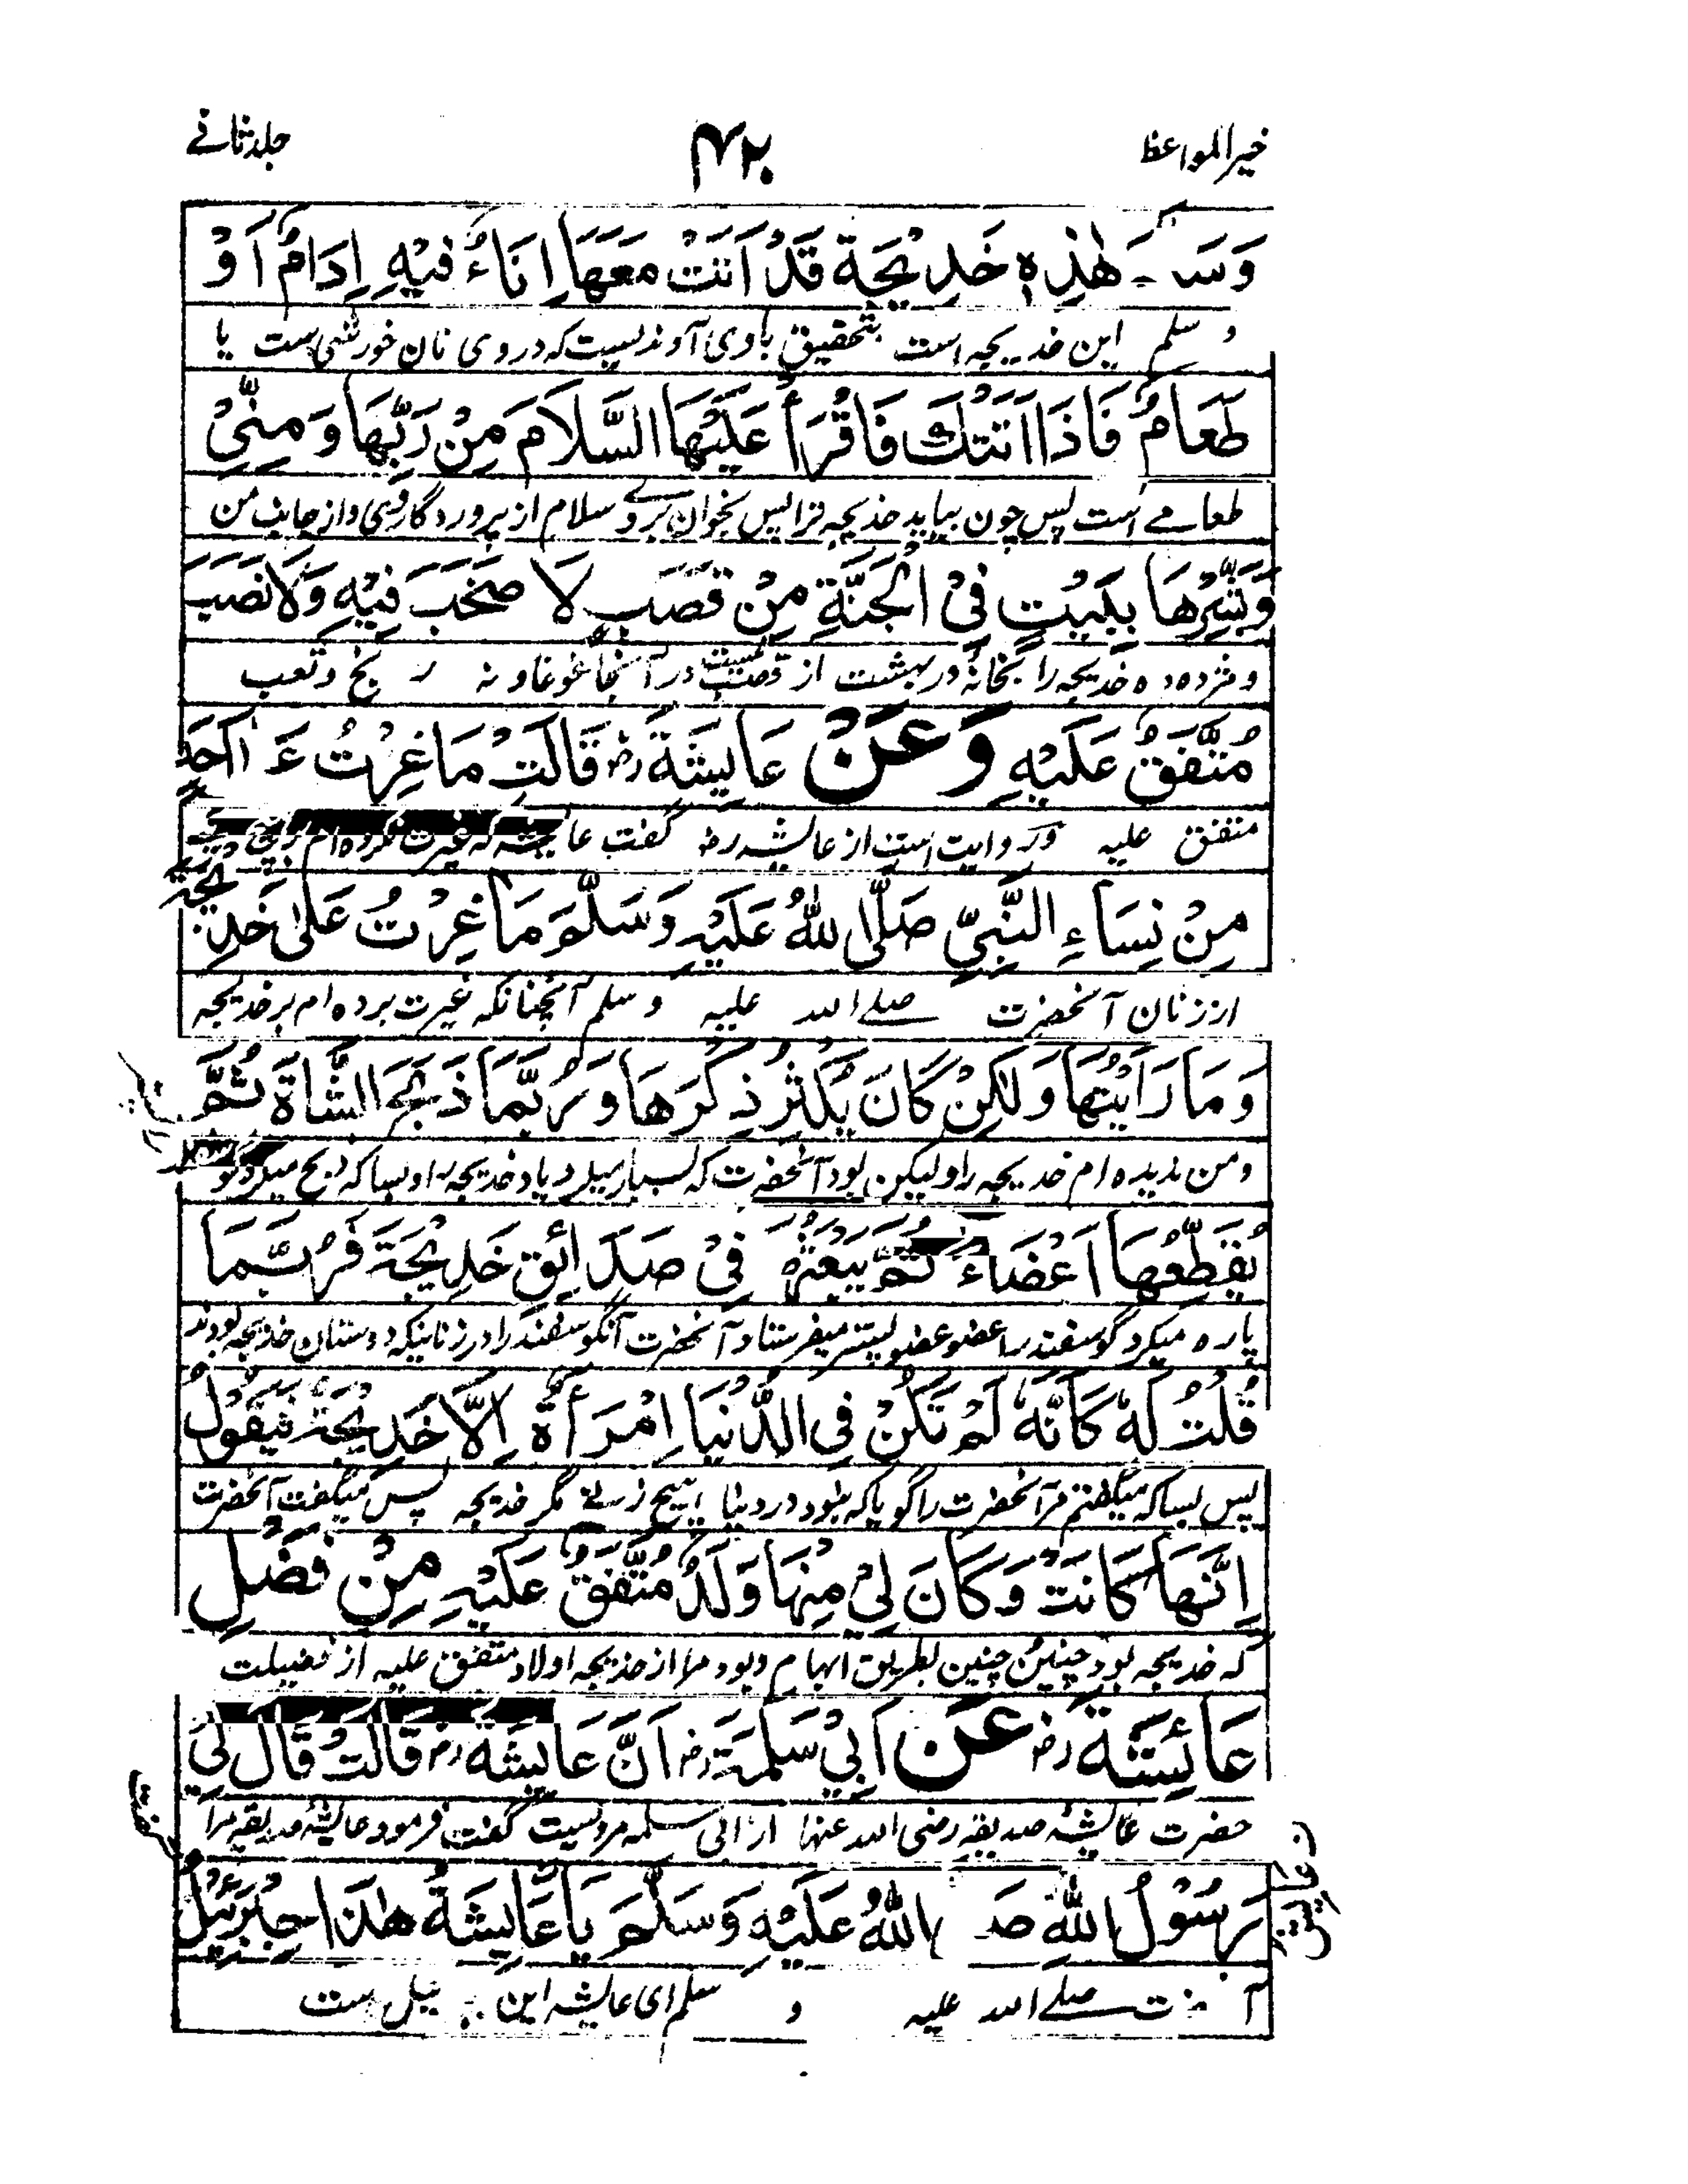 خیر المواعظ
۴۲۰
جلد ثانے
وَسَـ هٰذِهٖ خَدِيْجَةُ قَدْ اَتَتْ مَعَهَا اِنَاءٌ فِيْهِ اِدَامٌ اَوْ
و سلم این خدیجه است بتحقیق باوی آوندیست که در وی نان خورشی ست یا
طَعَامٌ فَاِذَا اَتَتْكَ فَاقْرَأْ عَلَيْهَا السَّلَامَ مِنْ رَبِّهَا وَمِنِّيْ
طعامے است پس چون بیاید خدیجه ترا پس بخوان بروے سلام از پروردگار وی و از جانب من
وَبَشِّرْهَا بِبَيْتٍ فِي الْجَنَّةِ مِنْ قَصَبٍ لَا صَخَبَ فِيْهِ وَلَا نَصَبَ
و مژده ده خدیجه را بخانۀ در بهشت از قصب نیست در آنجا غوغا و نه رنج و تعب
مُتَّفَقٌ عَلَيْهِ وَعَنْ عَايِشَةَ رضـ قَالَتْ مَا غِرْتُ عَـ اَحَدٍ
متفق علیه و روایت است از عایشه رضـ گفت عایشه که غیرت نکرده ام بر هیچ یکے
مِنْ نِسَاءِ النَّبِيِّ صَلَّى اللهُ عَلَيْهِ وَسَلَّمَ مَا غِرْتُ عَلٰى خَدِيْجَةَ
از زنان آنحضرت صلے الله علیه و سلم آنچنانکه غیرت برده ام بر خدیجه
وَمَا رَاَيْتُهَا وَلٰكِنْ كَانَ يُكْثِرُ ذِكْرَهَا وَرُبَّمَا ذَبَحَ الشَّاةَ ثُمَّ
و من ندیده ام خدیجه را و لیکن بود آنحضرت که بسیار میکرد یاد خدیجه را و بسا که ذبح میکرد گو
يُقَطِّعُهَا اَعْضَاءً ثُمَّ يَبْعَثُهَا فِيْ صَدَائِقِ خَدِيْجَةَ فَرُبَّمَا
پاره میکرد گوسفند را عضو عضو پستر میفرستاد آنحضرت آنگوسفند را در زنانیکه دوستان خدیجه بودند
قُلْتُ لَهٗ كَاَنَّهٗ لَمْ تَكُنْ فِي الدُّنْيَا اِمْرَأَةٌ اِلَّا خَدِيْجَةُ فَيَقُوْلُ
پس بسا که میگفتم مر آنحضرت را گویا که نبود در دنیا هیچ زنے مگر خدیجه پس میگفت آنحضرت
اِنَّهَا كَانَتْ وَكَانَ لِيْ مِنْهَا وَلَدٌ مُتَّفَقٌ عَلَيْهِ مِنْ فَضْلِ
که خدیجه بود چنین چنین بطریق ابهام و بود مرا از خدیجه اولاد متفق علیه از فضیلت
عَائِشَةَ رضـ عَنْ اَبِيْ سَلَمَةَ رضـ اَنَّ عَايِشَةَ رضـ قَالَتْ قَالَ لِيْ
حضرت عایشۀ صدیقه رضی الله عنها از ابی سلمه مرویست گفت فرمود عایشۀ صدیقه مرا
رَسُوْلُ اللهِ صَـ اللهُ عَلَيْهِ وَسَلَّمَ يَا عَايِشَةُ هٰذَا جِبْرَئِيْلُ
آ ت صلے الله علیه و سلم ای عایشه این یل ست